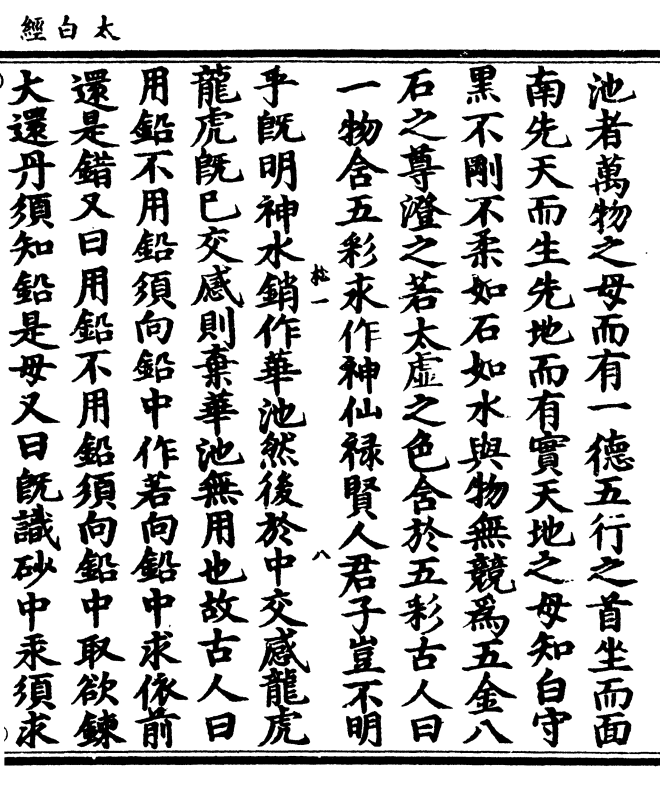 太白經
池者萬物之母而有一德五行之首坐而面
南先天而生先地而有實天地之母知白守
黑不剛不柔如石如水與物無競爲五金八
石之尊澄之若太虛之色含於五彩古人曰
一物含五彩求作神仙祿賢人君子豈不明
松一
八
乎既明神水銷作華池然後於中交感龍虎
龍虎既已交感則棄華池無用也故古人曰
用鉛不用鉛須向鉛中作若向鉛中求依前
還是錯又曰用鉛不用鉛須向鉛中取欲鍊
大還丹須知鉛是母又曰既識砂中汞須求